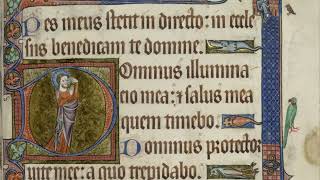 Pes meus stetit in directo: in eccle
siis benedicam te domine.
Dominus illumina
cio mea: et salus mea
quem timebo:
Dominus protector
uite mee: a quo trepidabo.